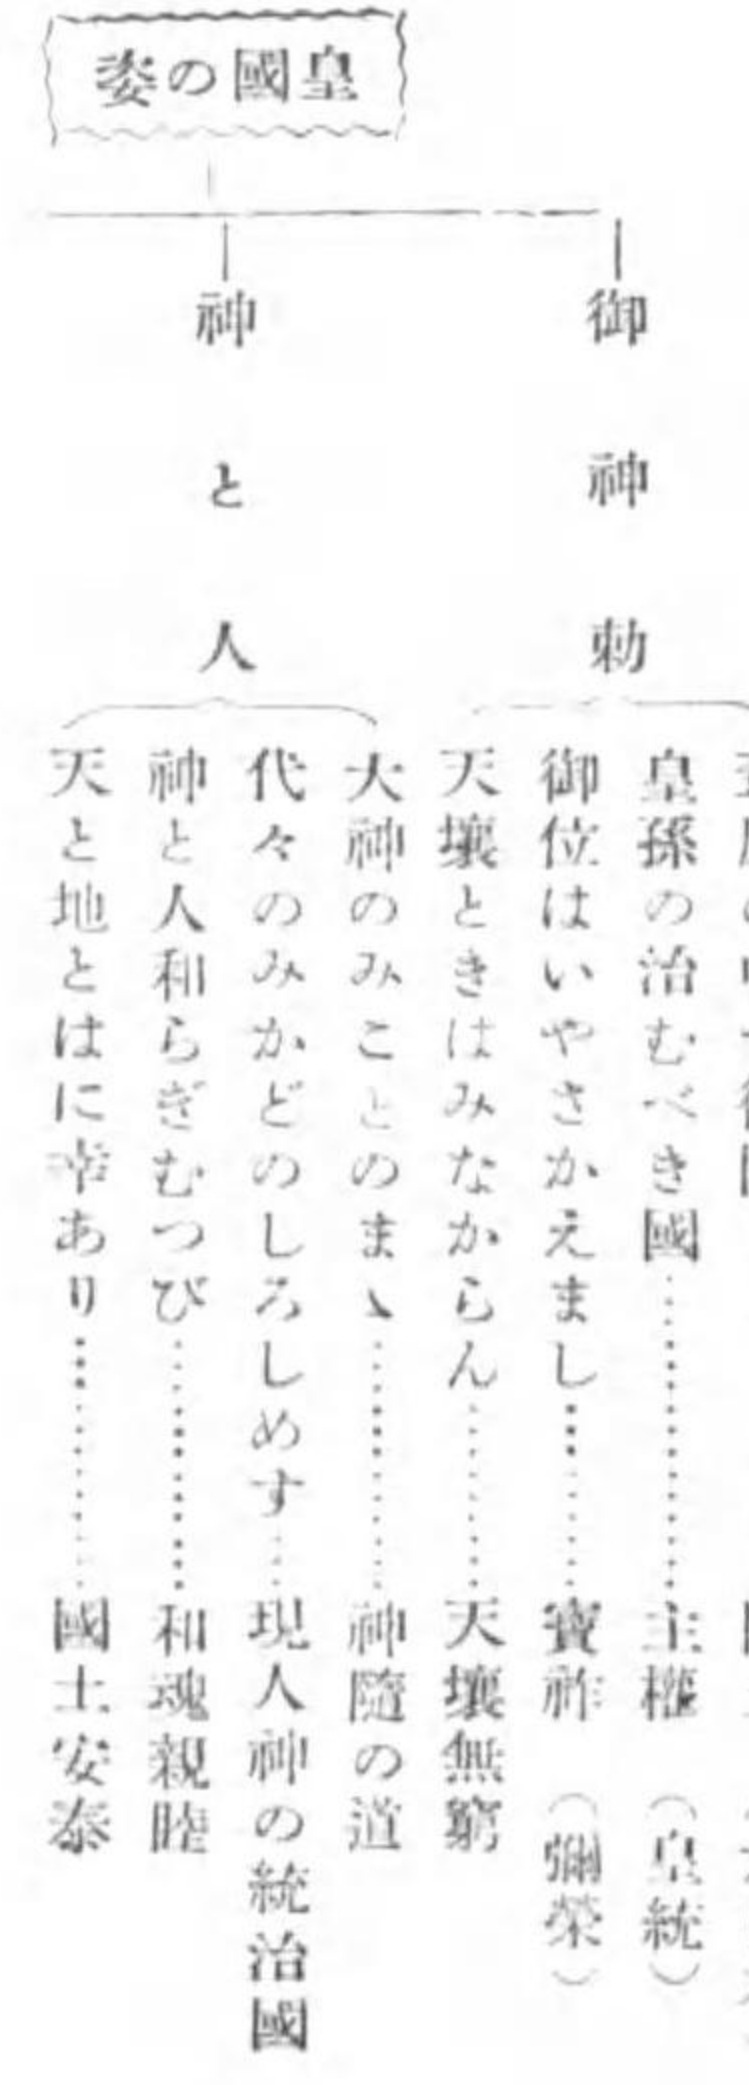 皇國の姿
御神勅
皇孫の治むべき國…………主權（皇統）
御位はいやさかえまし…………寶祚（彌榮）
天壤ときはみなからん…………天壤無窮
神と人
大神のみことのまゝ…………神隨の道
代々のみかどのしろしめす…現人神の統治國
神と人和らぎむつび…………和魂親睦
天と地とはに幸あり…………國土安泰